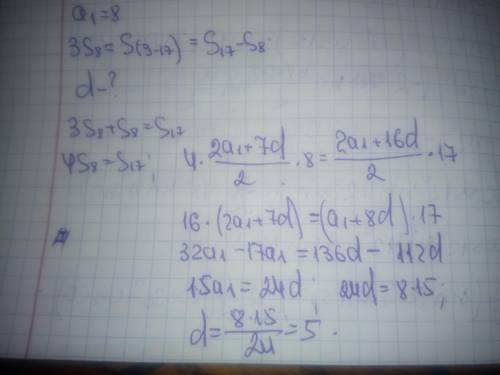 a₁=8
3S₈=S(9-17) = S₁₇-S₈
d-?
3S₈+S₈=S₁₇
4S₈=S₁₇;
4·(2a₁+7d)/2·8=(2a₁+16d)/2·17
16·(2a₁+7d)=(a₁+8d)·17
32a₁-17a₁=136d-112d
15a₁=24d; 24d=8·15;
d=(8·15)/24=5.